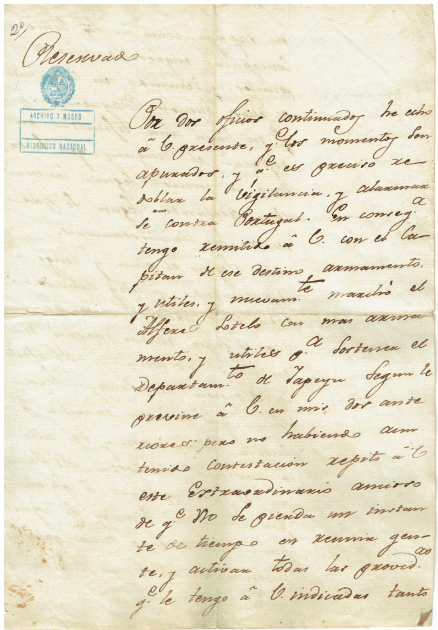 2º/
Reservad
ARCHIVO Y MUSEO
HISTORICO NACIONAL
Por dos oficios continuados he echo
â V. presente, q.e los momentos son
apurados, y q.e es preciso re-
doblar la vigilancia, y alarmar
se contra Portugal. En conseq.a
tengo remitido â V. con el Ca-
pitan de ese destino armamento,
y utiles, y nuevam.te marchó el
Alferes Sotelo con mas arma
mento, y utiles p.a sostener el
Departam.to de Yapeyu segun le
previne â V. en mis dos ante
riores; pero no habiendo aun
tenido contestacion repito â V.
este Extraordinario
de q.e no se pierda un instan
te de tiempo en reunir gen-
te, y activar todas las provid.as
q.e le tengo â V. indicadas tanto